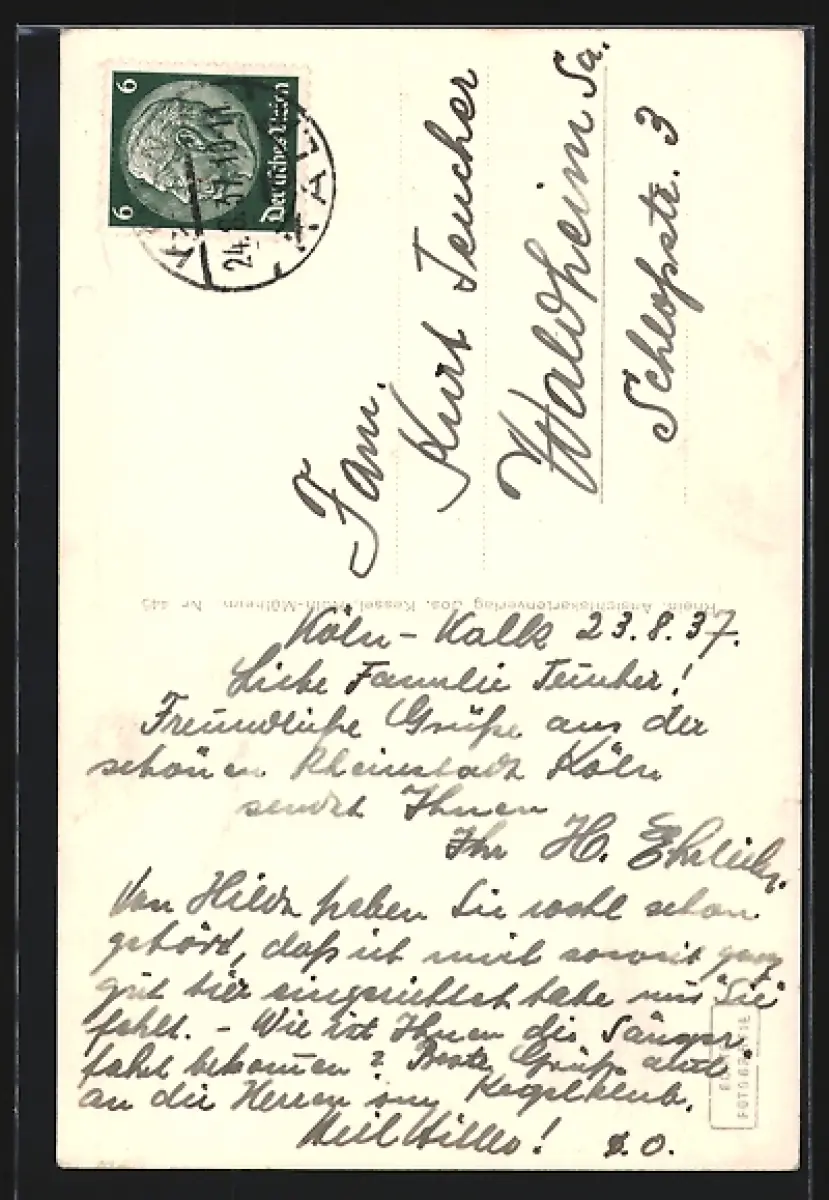 6
6
Deutsches Reich
24.8.37.10-11
Fam.
Kurt Teucher
Waldheim Sa.
Schloßstr. 3
Rhein. Ansichtskartenverlag Jos. Kessel, Köln-Mülheim Nr 445
Köln – Kalk 23.8.37.
Liebe Familie Teucher!
Freundliche Grüße aus der
schönen Rheinstadt Köln
sendet Ihnen
Ihr H. Ehrlich.
Von Hilde haben Sie wohl schon
gehört, daß ich mich soweit ganz
gut hier eingerichtet habe nur "Sie"
fehlt. – Wie ist Ihnen die Sänger
fahrt bekommen? Beste Grüße auch
an die Herren vom Kegelklub.
Heil Hitler! D.O.
FOTOGRAFIE